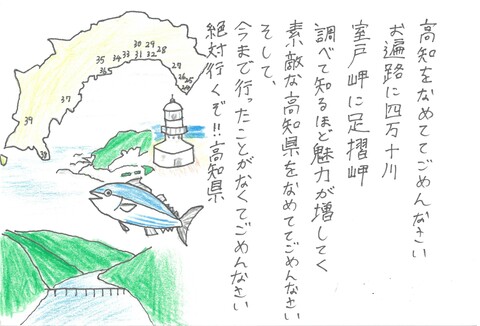 高知をなめててごめんなさい
お遍路に四万十川
室戸岬に足摺岬
調べて知るほど魅力が増してく
素敵な高知県をなめててごめんなさい
そして、
今まで行ったことがなくてごめんなさい
絶対行くぞ!!高知県
30 29
33 31 32 28
35 34
36.5
27
26
25
24
37
39
38